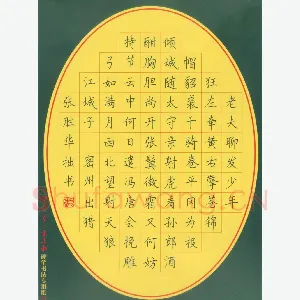 老夫聊发少年
狂左牵黄右擎苍锦
帽貂裘千骑卷平冈为报
倾城随太守亲射虎看孙郎酒
酣胸胆尚开张鬓微霜又何妨
持节云中何日遣冯唐会挽雕
弓如满月西北望射天狼
江城子 密州出猎
张胜华拙书